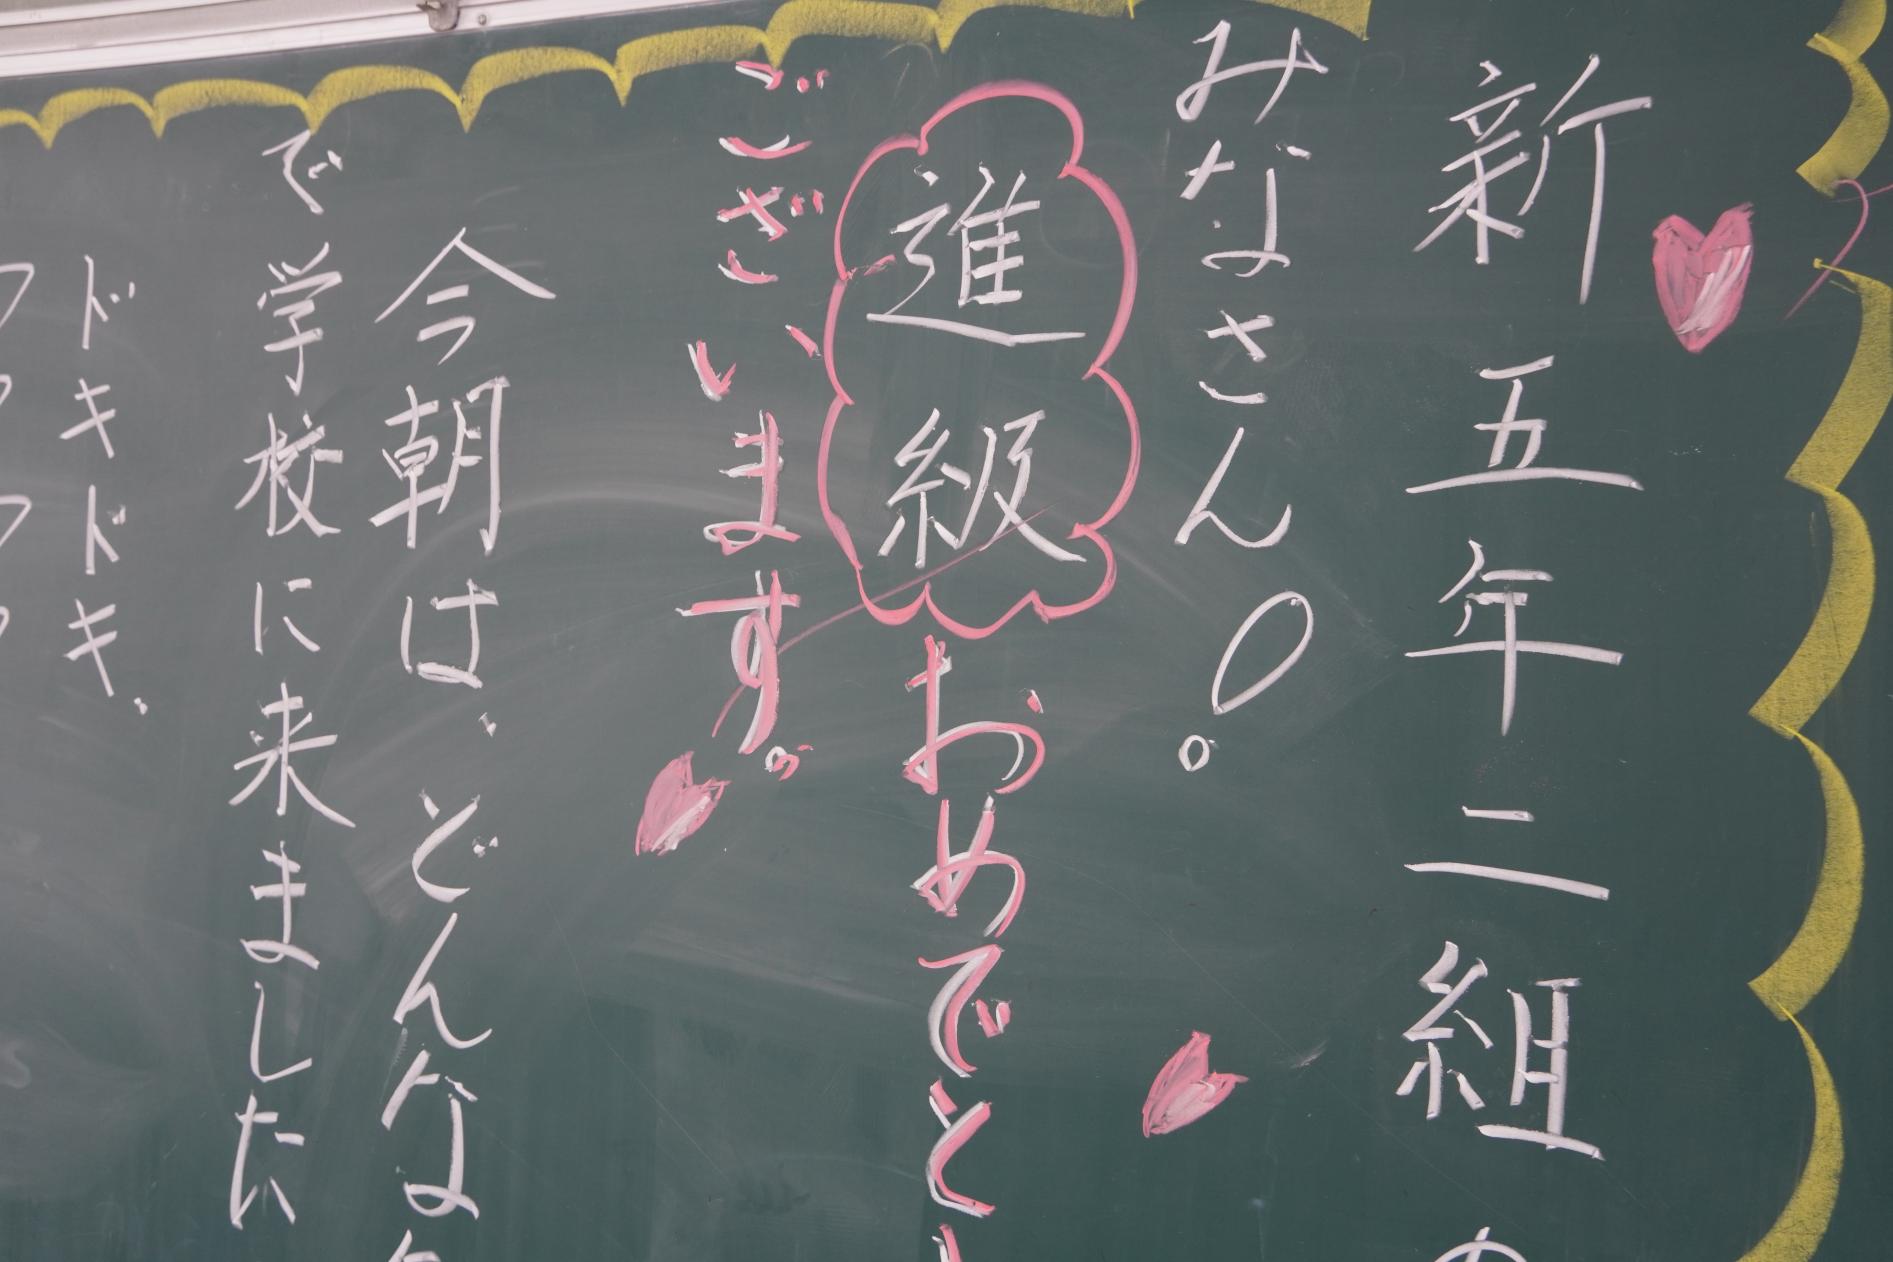 新五年二組の
みなさん。
進級おめでと
ございます。
今朝は、どんな
で学校に来ました
ドキドキ、